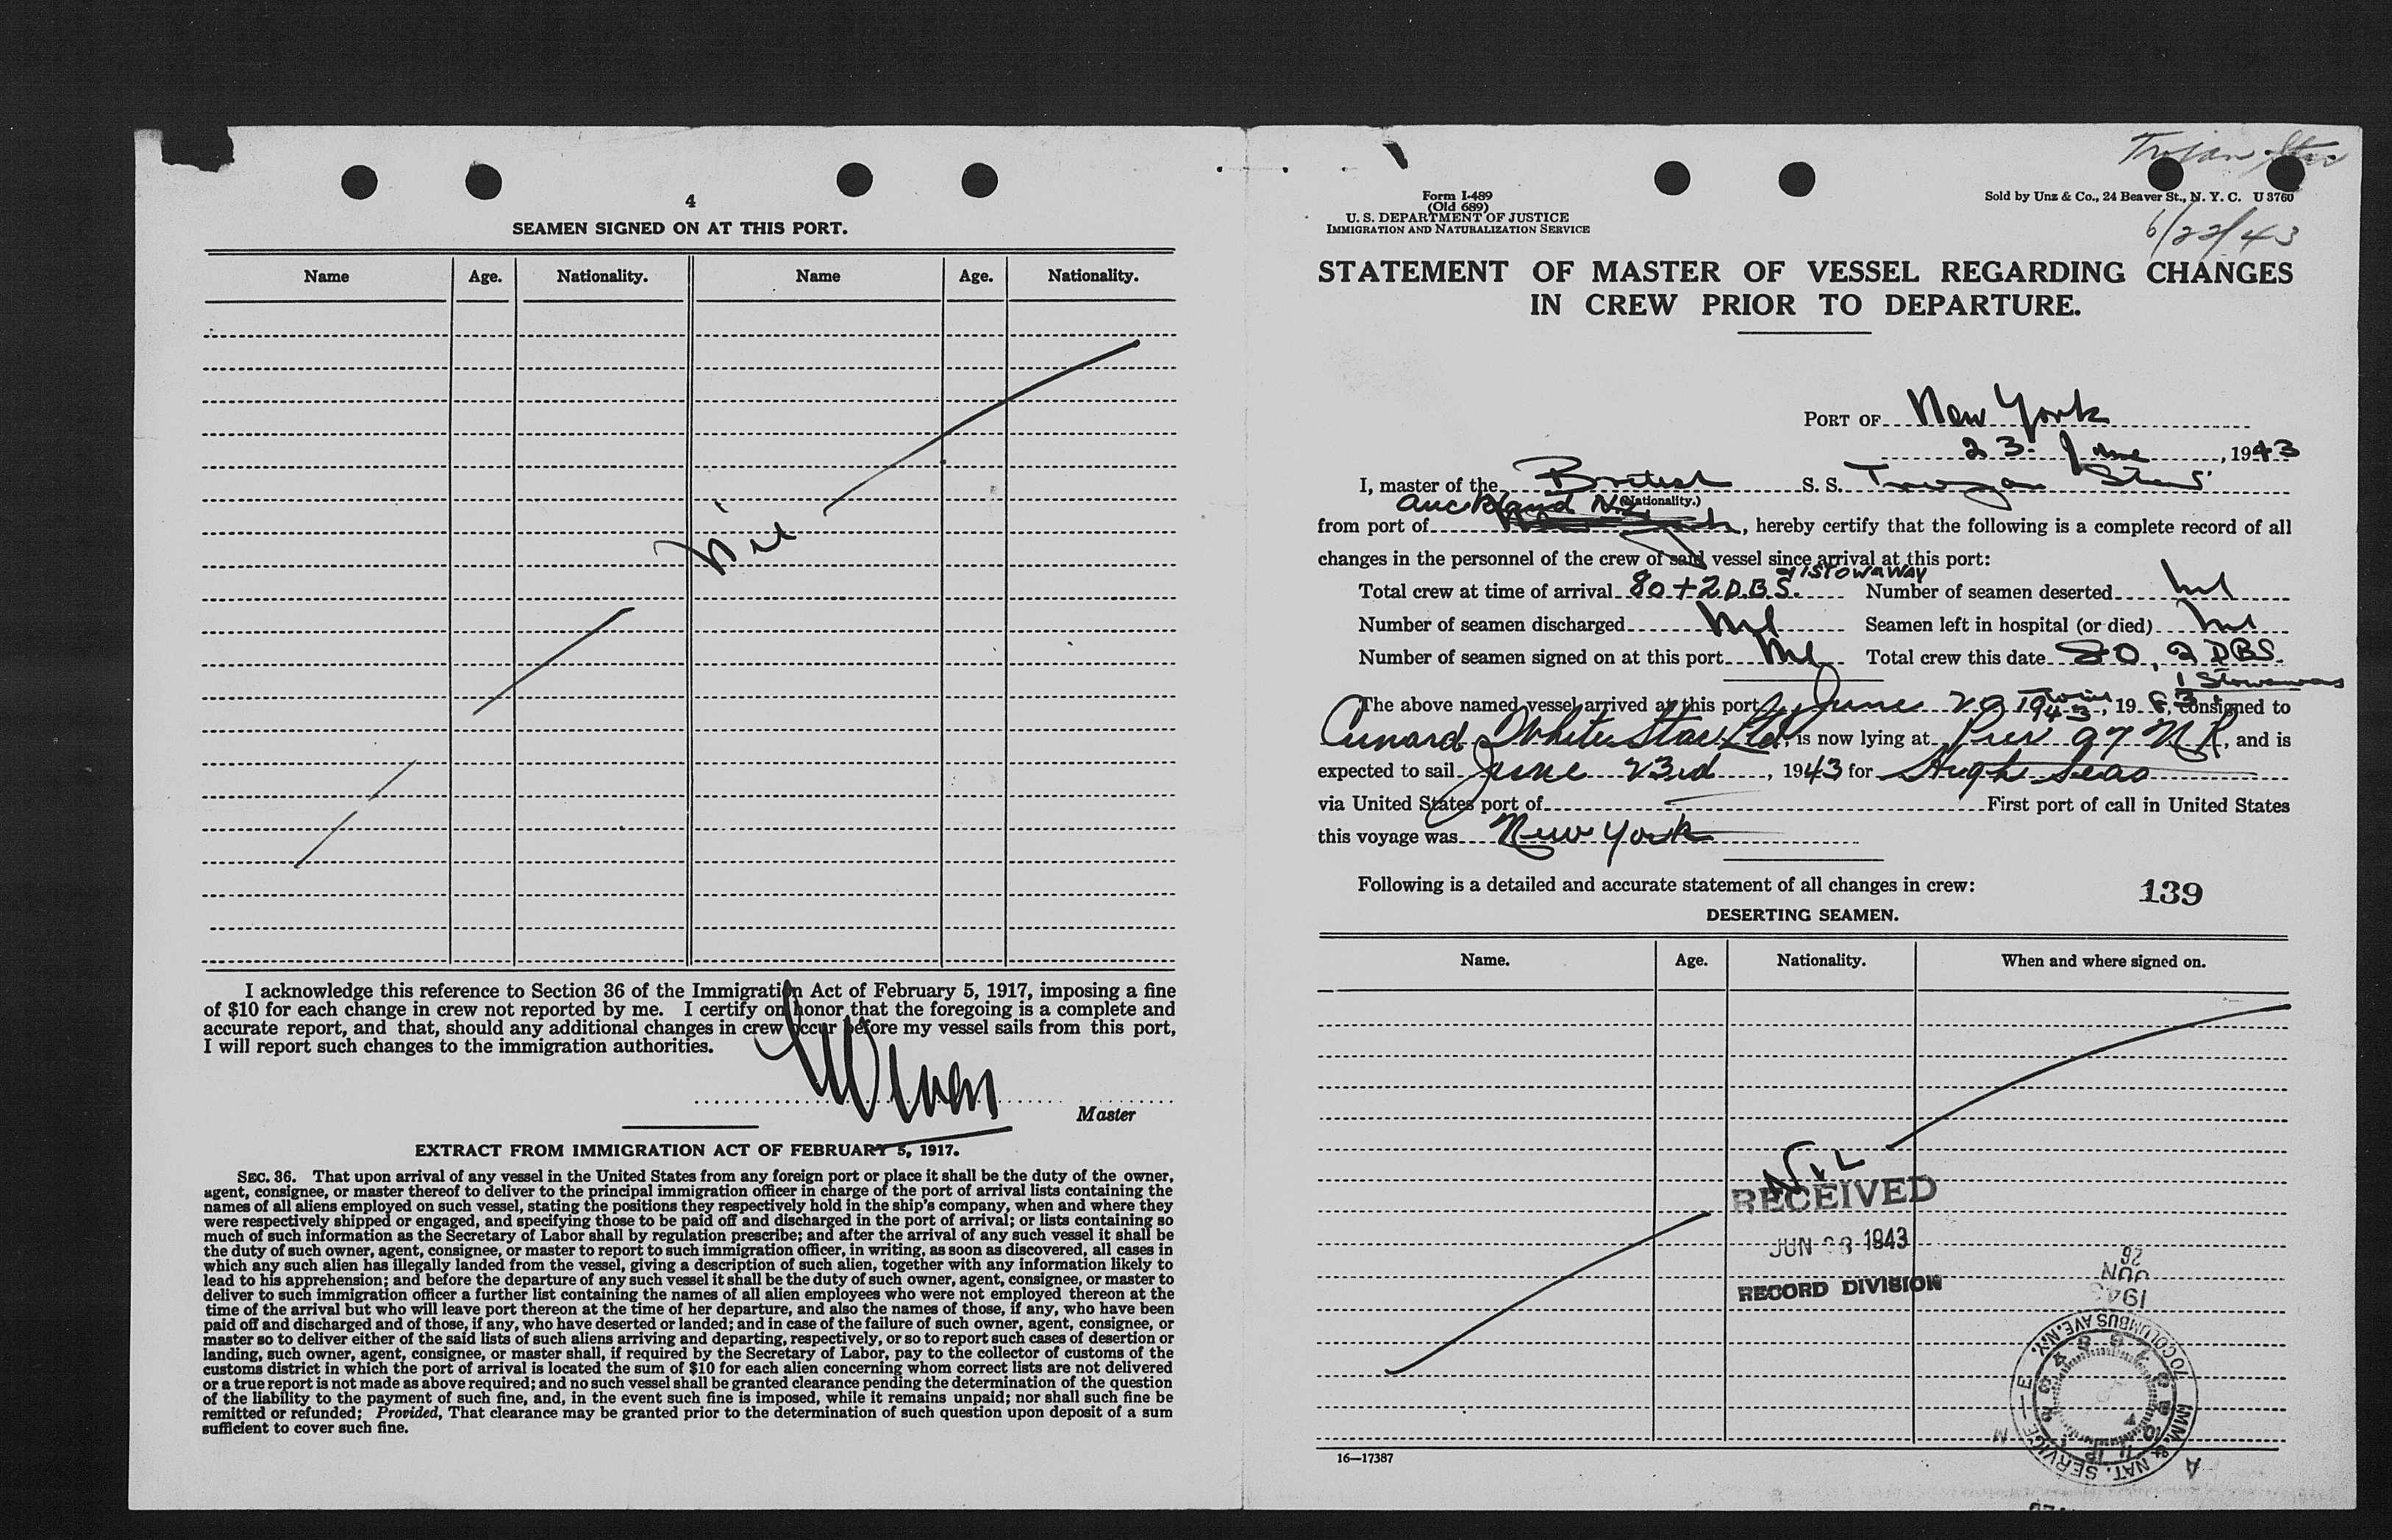 4
SEAMEN SIGNED ON AT THIS PORT.
Name Age. Nationality. Name Age. Nationality.
Nil
I acknowledge this reference to Section 36 of the Immigration Act of February 5, 1917, imposing a fine
of $10 for each change in crew not reported by me. I certify on honor that the foregoing is a complete and
accurate report, and that, should any additional changes in crew occur before my vessel sails from this port,
I will report such changes to the immigration authorities.
Master
EXTRACT FROM IMMIGRATION ACT OF FEBRUARY 5, 1917.
SEC. 36. That upon arrival of any vessel in the United States from any foreign port or place it shall be the duty of the owner,
agent, consignee, or master thereof to deliver to the principal immigration officer in charge of the port of arrival lists containing the
names of all aliens employed on such vessel, stating the positions they respectively hold in the ship's company, when and where they
were respectively shipped or engaged, and specifying those to be paid off and discharged in the port of arrival; or lists containing so
much of such information as the Secretary of Labor shall by regulation prescribe; and after the arrival of any such vessel it shall be
the duty of such owner, agent, consignee, or master to report to such immigration officer, in writing, as soon as discovered, all cases in
which any such alien has illegally landed from the vessel, giving a description of such alien, together with any information likely to
lead to his apprehension; and before the departure of any such vessel it shall be the duty of such owner, agent, consignee, or master to
deliver to such immigration officer a further list containing the names of all alien employees who were not employed thereon at the
time of the arrival but who will leave port thereon at the time of her departure, and also the names of those, if any, who have been
paid off and discharged and of those, if any, who have deserted or landed; and in case of the failure of such owner, agent, consignee, or
master so to deliver either of the said lists of such aliens arriving and departing, respectively, or so to report such cases of desertion or
landing, such owner, agent, consignee, or master shall, if required by the Secretary of Labor, pay to the collector of customs of the
customs district in which the port of arrival is located the sum of $10 for each alien concerning whom correct lists are not delivered
or a true report is not made as above required; and no such vessel shall be granted clearance pending the determination of the question
of the liability to the payment of such fine, and, in the event such fine is imposed, while it remains unpaid; nor shall such fine be
remitted or refunded; Provided, That clearance may be granted prior to the determination of such question upon deposit of a sum
sufficient to cover such fine.
Trojan Star
Form I-489
(Old 689)
U. S. DEPARTMENT OF JUSTICE
IMMIGRATION AND NATURALIZATION SERVICE
Sold by Unz & Co., 24 Beaver St., N. Y. C. U 3760
6/22/43
STATEMENT OF MASTER OF VESSEL REGARDING CHANGES
IN CREW PRIOR TO DEPARTURE.
PORT OF New York
23. June, 1943
I, master of the British S. S. Trojan Star
(Nationality.)
Auckland N.Z.
from port of, hereby certify that the following is a complete record of all
changes in the personnel of the crew of said vessel since arrival at this port:
1 STOWAWAY
Total crew at time of arrival 80 + 2 D.B.S. Number of seamen deserted Nil
Number of seamen discharged Nil Seamen left in hospital (or died) Nil
Number of seamen signed on at this port Nil Total crew this date 80, 2 DBS.
1 Stowaway
The above named vessel arrived at this port June 1943, 19 consigned to
Cunard White Star Ltd, is now lying at Pier 97 N R, and is
expected to sail June 23rd, 1943 for High Seas
via United States port of First port of call in United States
this voyage was New York
Following is a detailed and accurate statement of all changes in crew:
139
DESERTING SEAMEN.
Name. Age. Nationality. When and where signed on.
NIL
RECEIVED
JUN 28 1943
RECORD DIVISION
1943
JUN
26
70 COLUMBUS AVE. N.Y.
IMM. & NAT. SERVICE
16—17387